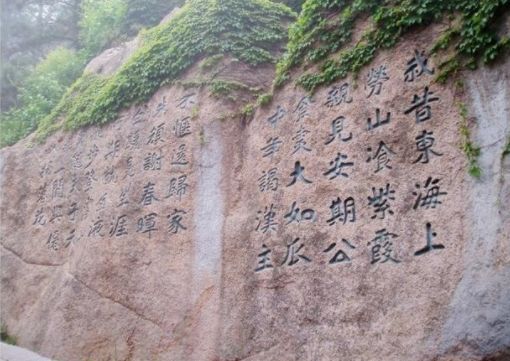 我昔東海上
勞山湌紫霞
親見安期公
食棗大如瓜
中年謁漢主
不愜還歸家
朱顏謝春暉
見生涯
液
子天
閒與僊
落花